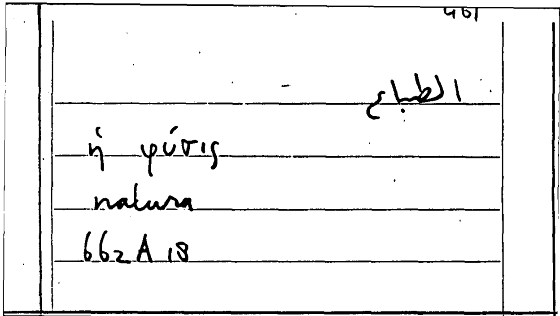 461
الطباع
ἡ φύσις
natura
662 A 18